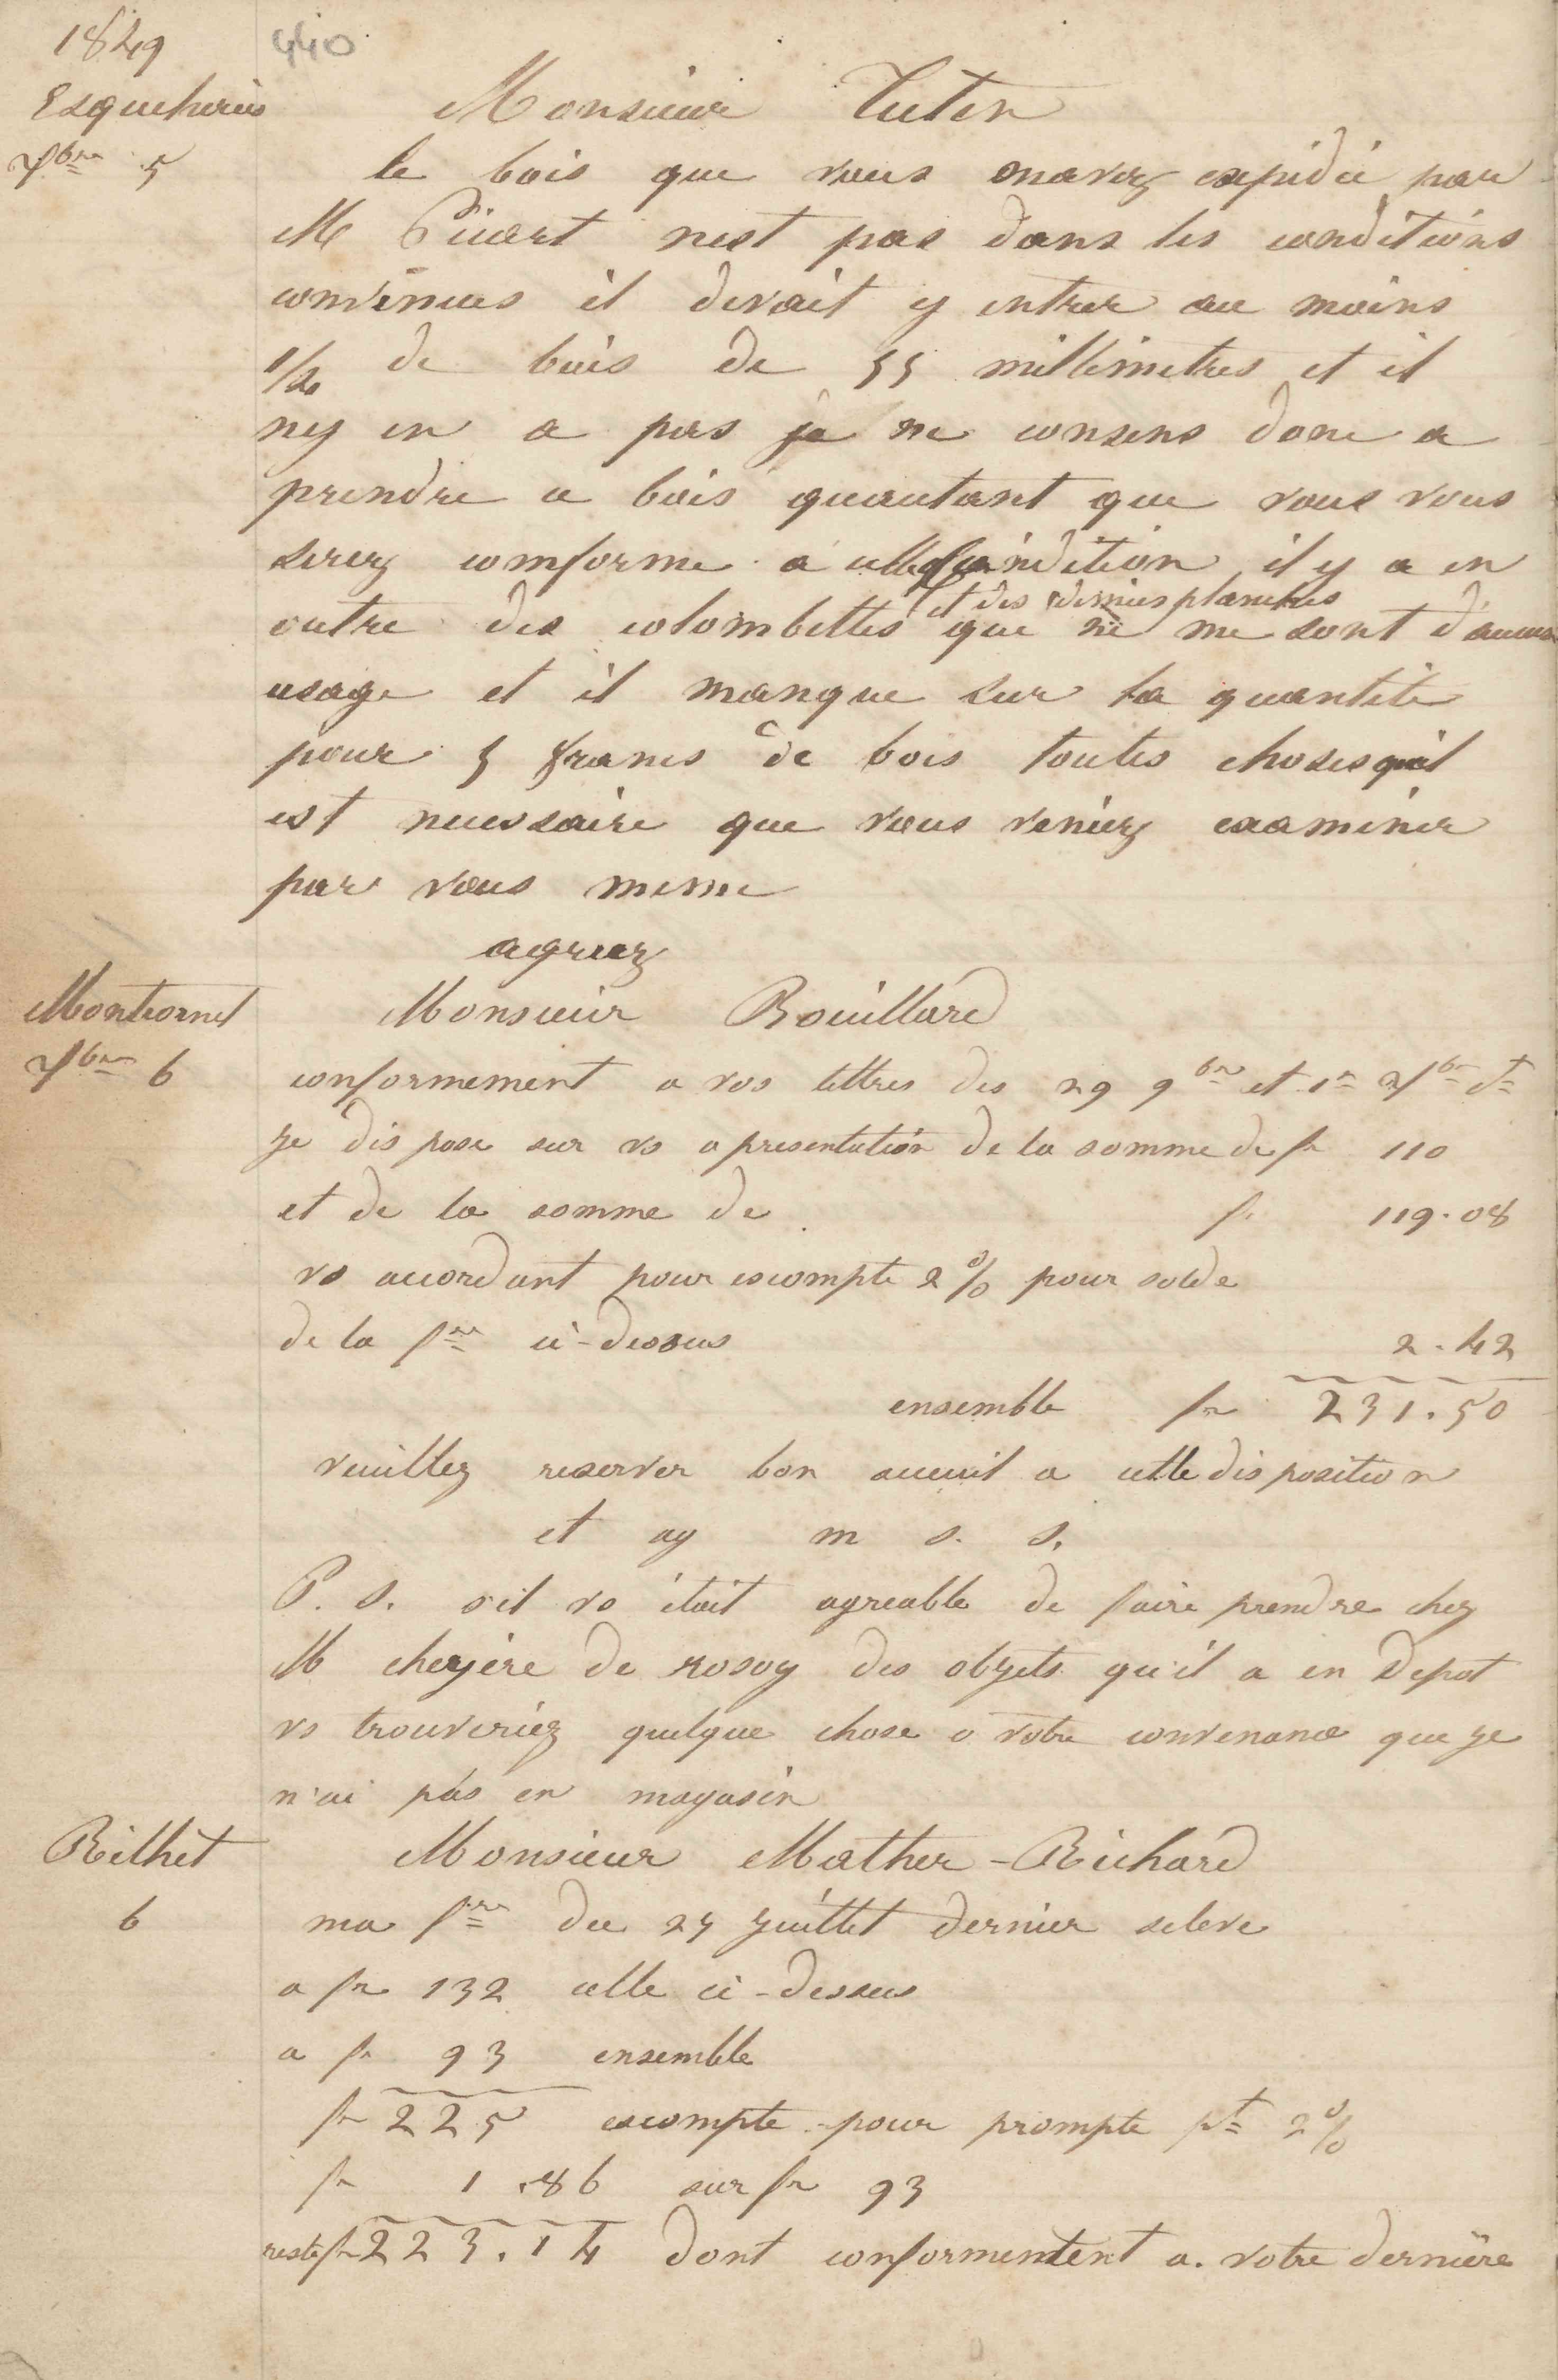 1849
440
Esqueheries
Xbre 5
Monsieur Tuten
le bois que vous mavez expidié par
M Picart nest pas dans les conditions
convenues il devait y entrer au moins
1/2 de bois de 55 millimetres et il
ny en a pas je ne consens donc a
prendre ce bois quautant que vous vous
serez comforme a cette condition il y a en
et des demies planches
outre des colombettes que ne me sont d'aucun
usage et il manque sur la quantité
pour 5 francs de bois toutes choses quil
est necessaire que vous veniez examiner
par vous meme
agreez
Montcornet
Xbre 6
Monsieur Rouillard
conformement a vos lettres des 29 9bre et 1er Xbre ct
je dispose sur vs a presentation de la somme de fr 110
et de la somme de fr 119.08
vs accordant pour escompte 2% pour solde
de la fre ci-dessus 2.42
ensemble fr 231.50
veuillez reserver bon accueil a cette disposition
et ag m s. s.
P. S. s'il vs était agreable de faire prendre chez
M cheyère de rosoy des objets qu'il a en depot
vs trouveriez quelque chose a votre convenance que je
n'ai pas en magasin
Rethel
6
Monsieur Mather-Richard
ma fre du 25 juillet dernier seleve
a fr 132 celle ci-dessus
a fr 93 ensemble
fr 225 escompte pour prompte pt 2%
fr 1.86 sur fr 93
reste fr 223.14 dont conformentent a. votre dernière